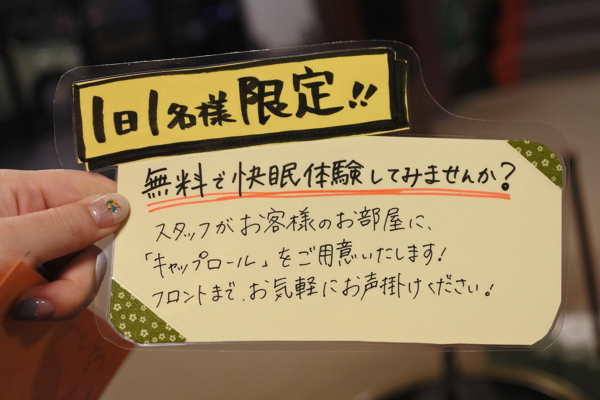 1日1名様限定!!
無料で快眠体験してみませんか?
スタッフがお客様のお部屋に、
「キャップロール」をご用意いたします!
フロントまで、お気軽にお声掛けください!